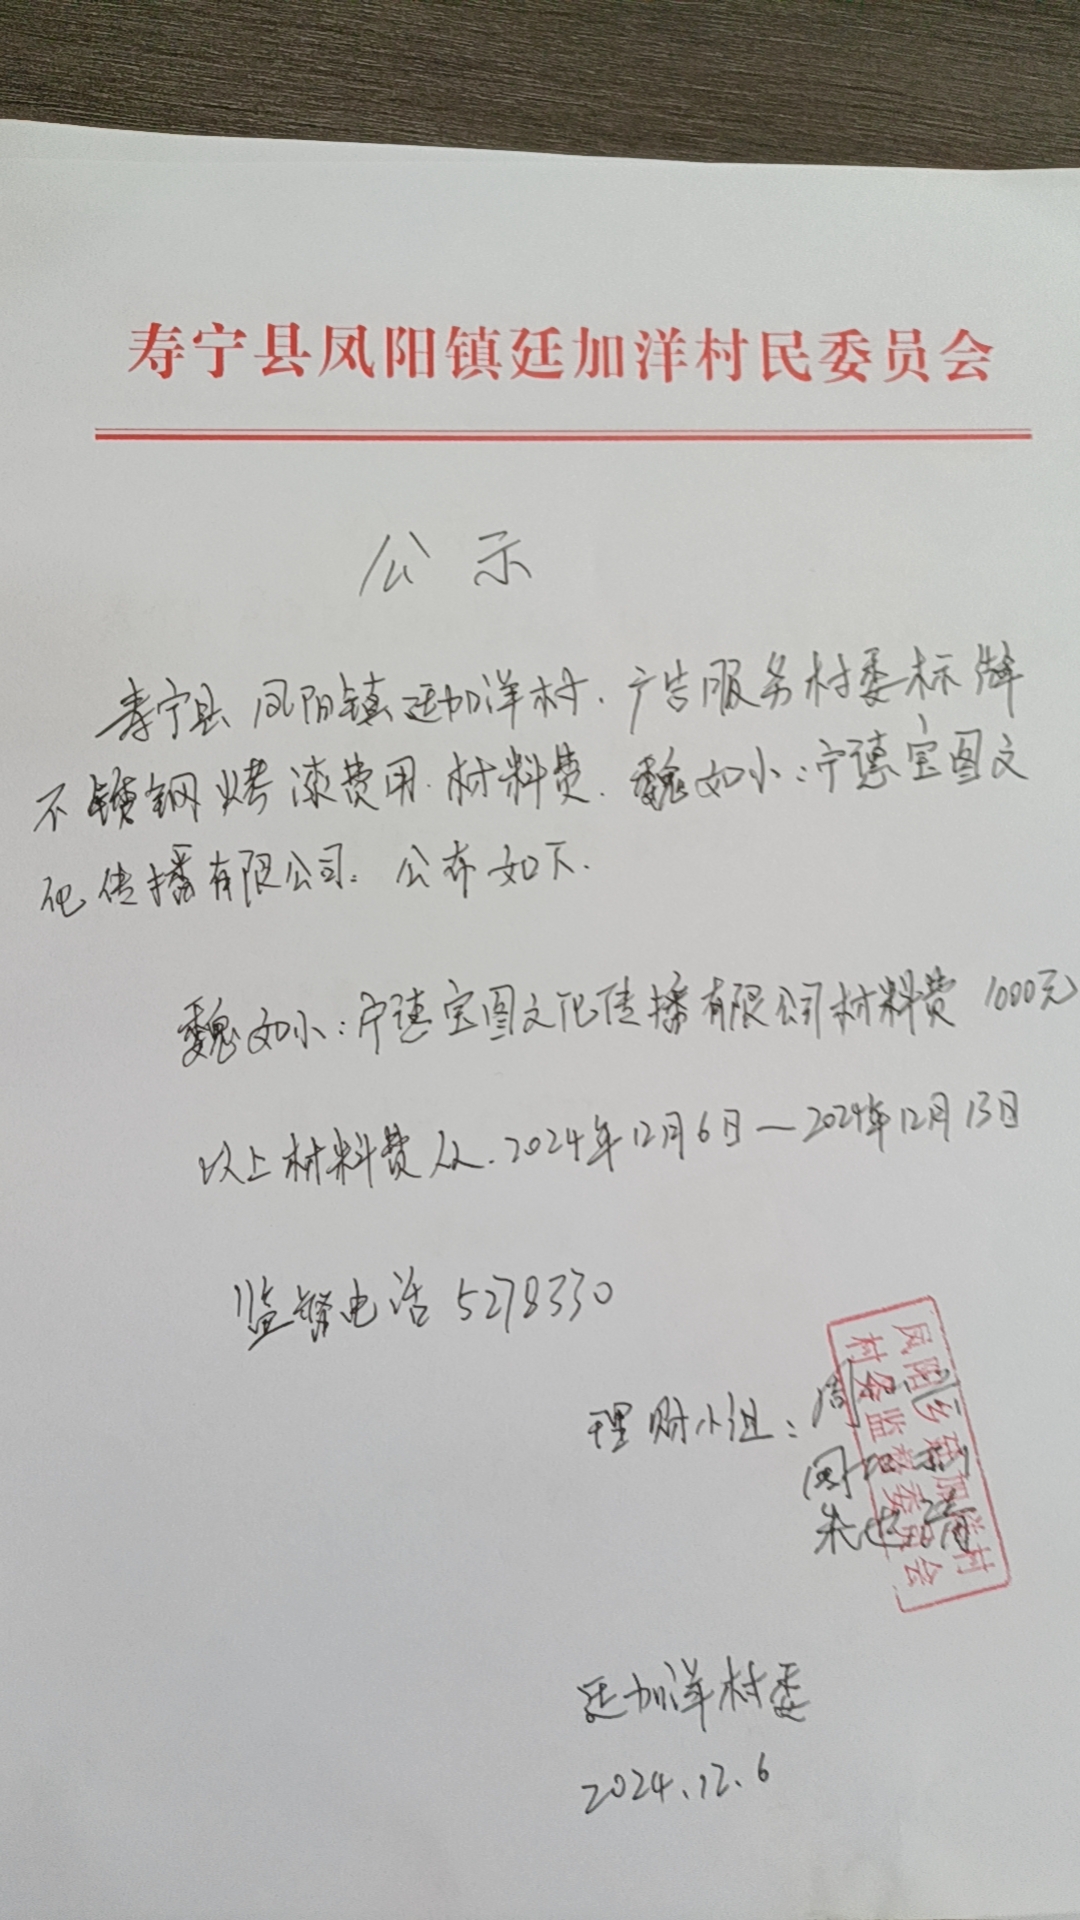 寿宁县凤阳镇廷加洋村民委员会
公示
寿宁县凤阳镇廷加洋村.广告服务村委标牌
不锈钢烤漆费用.材料费.魏如小:宁德宝图文
化传播有限公司。公布如下.
魏如小:宁德宝图文化传播有限公司材料费1000元
以上材料费从.2024年12月6日—2024年12月13日
监督电话5278330
理财小组:周
朱
凤阳乡廷加洋村
村务监督委员会
廷加洋村委
2024.12.6